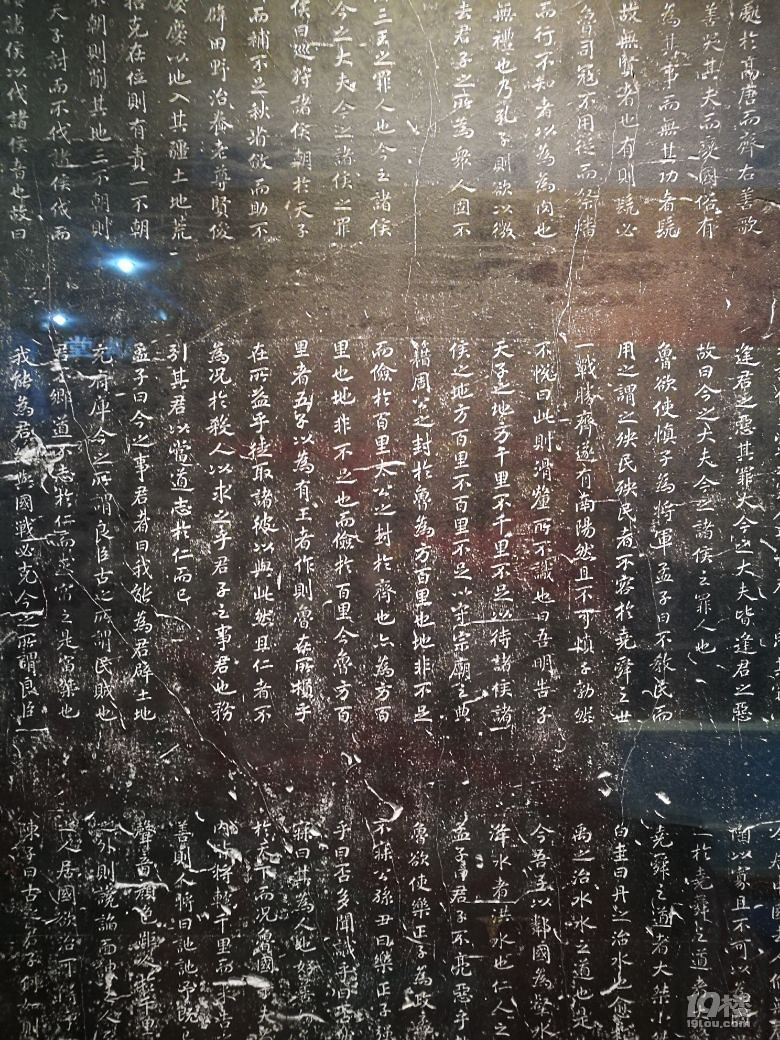 處於高唐而齊右善歌
善哭其夫而變國俗有
為其事而無其功者髡
故無賢者也有則髡必
魯司寇不用從而祭燔
而行不知者以為為肉也
無禮也乃孔子則欲以微
去君子之所為衆人固不
三王之罪人也今之諸侯
今之大夫今之諸侯之罪
侯曰巡狩諸侯朝於天子
而補不足秋省斂而助不
辟田野治養老尊賢俊
慶慶以地入其疆土地荒
掊克在位則有責一不朝
朝則削其地三不朝則
天子討而不伐諸侯伐而
諸侯以伐諸侯者也故曰
逢君之惡其罪大今之大夫皆逢君之惡
故曰今之大夫今之諸侯之罪人也
魯欲使慎子為將軍孟子曰不教民而
用之謂之殃民殃民者不容於堯舜之世
一戰勝齊遂有南陽然且不可慎子勃然
不悅曰此則滑釐所不識也曰吾明告子
天子之地方千里不千里不足以待諸侯諸
侯之地方百里不百里不足以守宗廟之典
籍周公之封於魯為方百里也地非不足
而儉於百里大公之封於齊也亦為方百
里也地非不足也而儉於百里今魯方百
里者五子以為有王者作則魯在所損乎
在所益乎徒取諸彼以與此然且仁者不
為況於殺人以求之乎君子之事君也務
引其君以當道志於仁而已
孟子曰今之事君者曰我能為君辟土地
充府庫今之所謂良臣古之所謂民賊也
君不鄉道不志於仁而求富之是富桀也
我能為君約與國戰必克今之所謂良臣
陶以寡且不可以
於堯舜之道
堯舜之道者大桀小桀
白圭曰丹之治水也愈於
禹之治水水之道也是
今吾子以鄰國為壑水
洚水者洪水也仁人之
孟子曰君子不亮惡乎
魯欲使樂正子為政孟
不寐公孫丑曰樂正子強
乎曰否多聞識乎曰否
寐曰其為人也好善
於天下而況魯國乎夫
內皆將輕千里而來告
善則人將曰訑訑予既已
聲音顏色距人於千里
之外則讒諂面諛之人
之人居國欲治可得乎
陳子曰古之君子何如則
堂
19楼
19lou.com